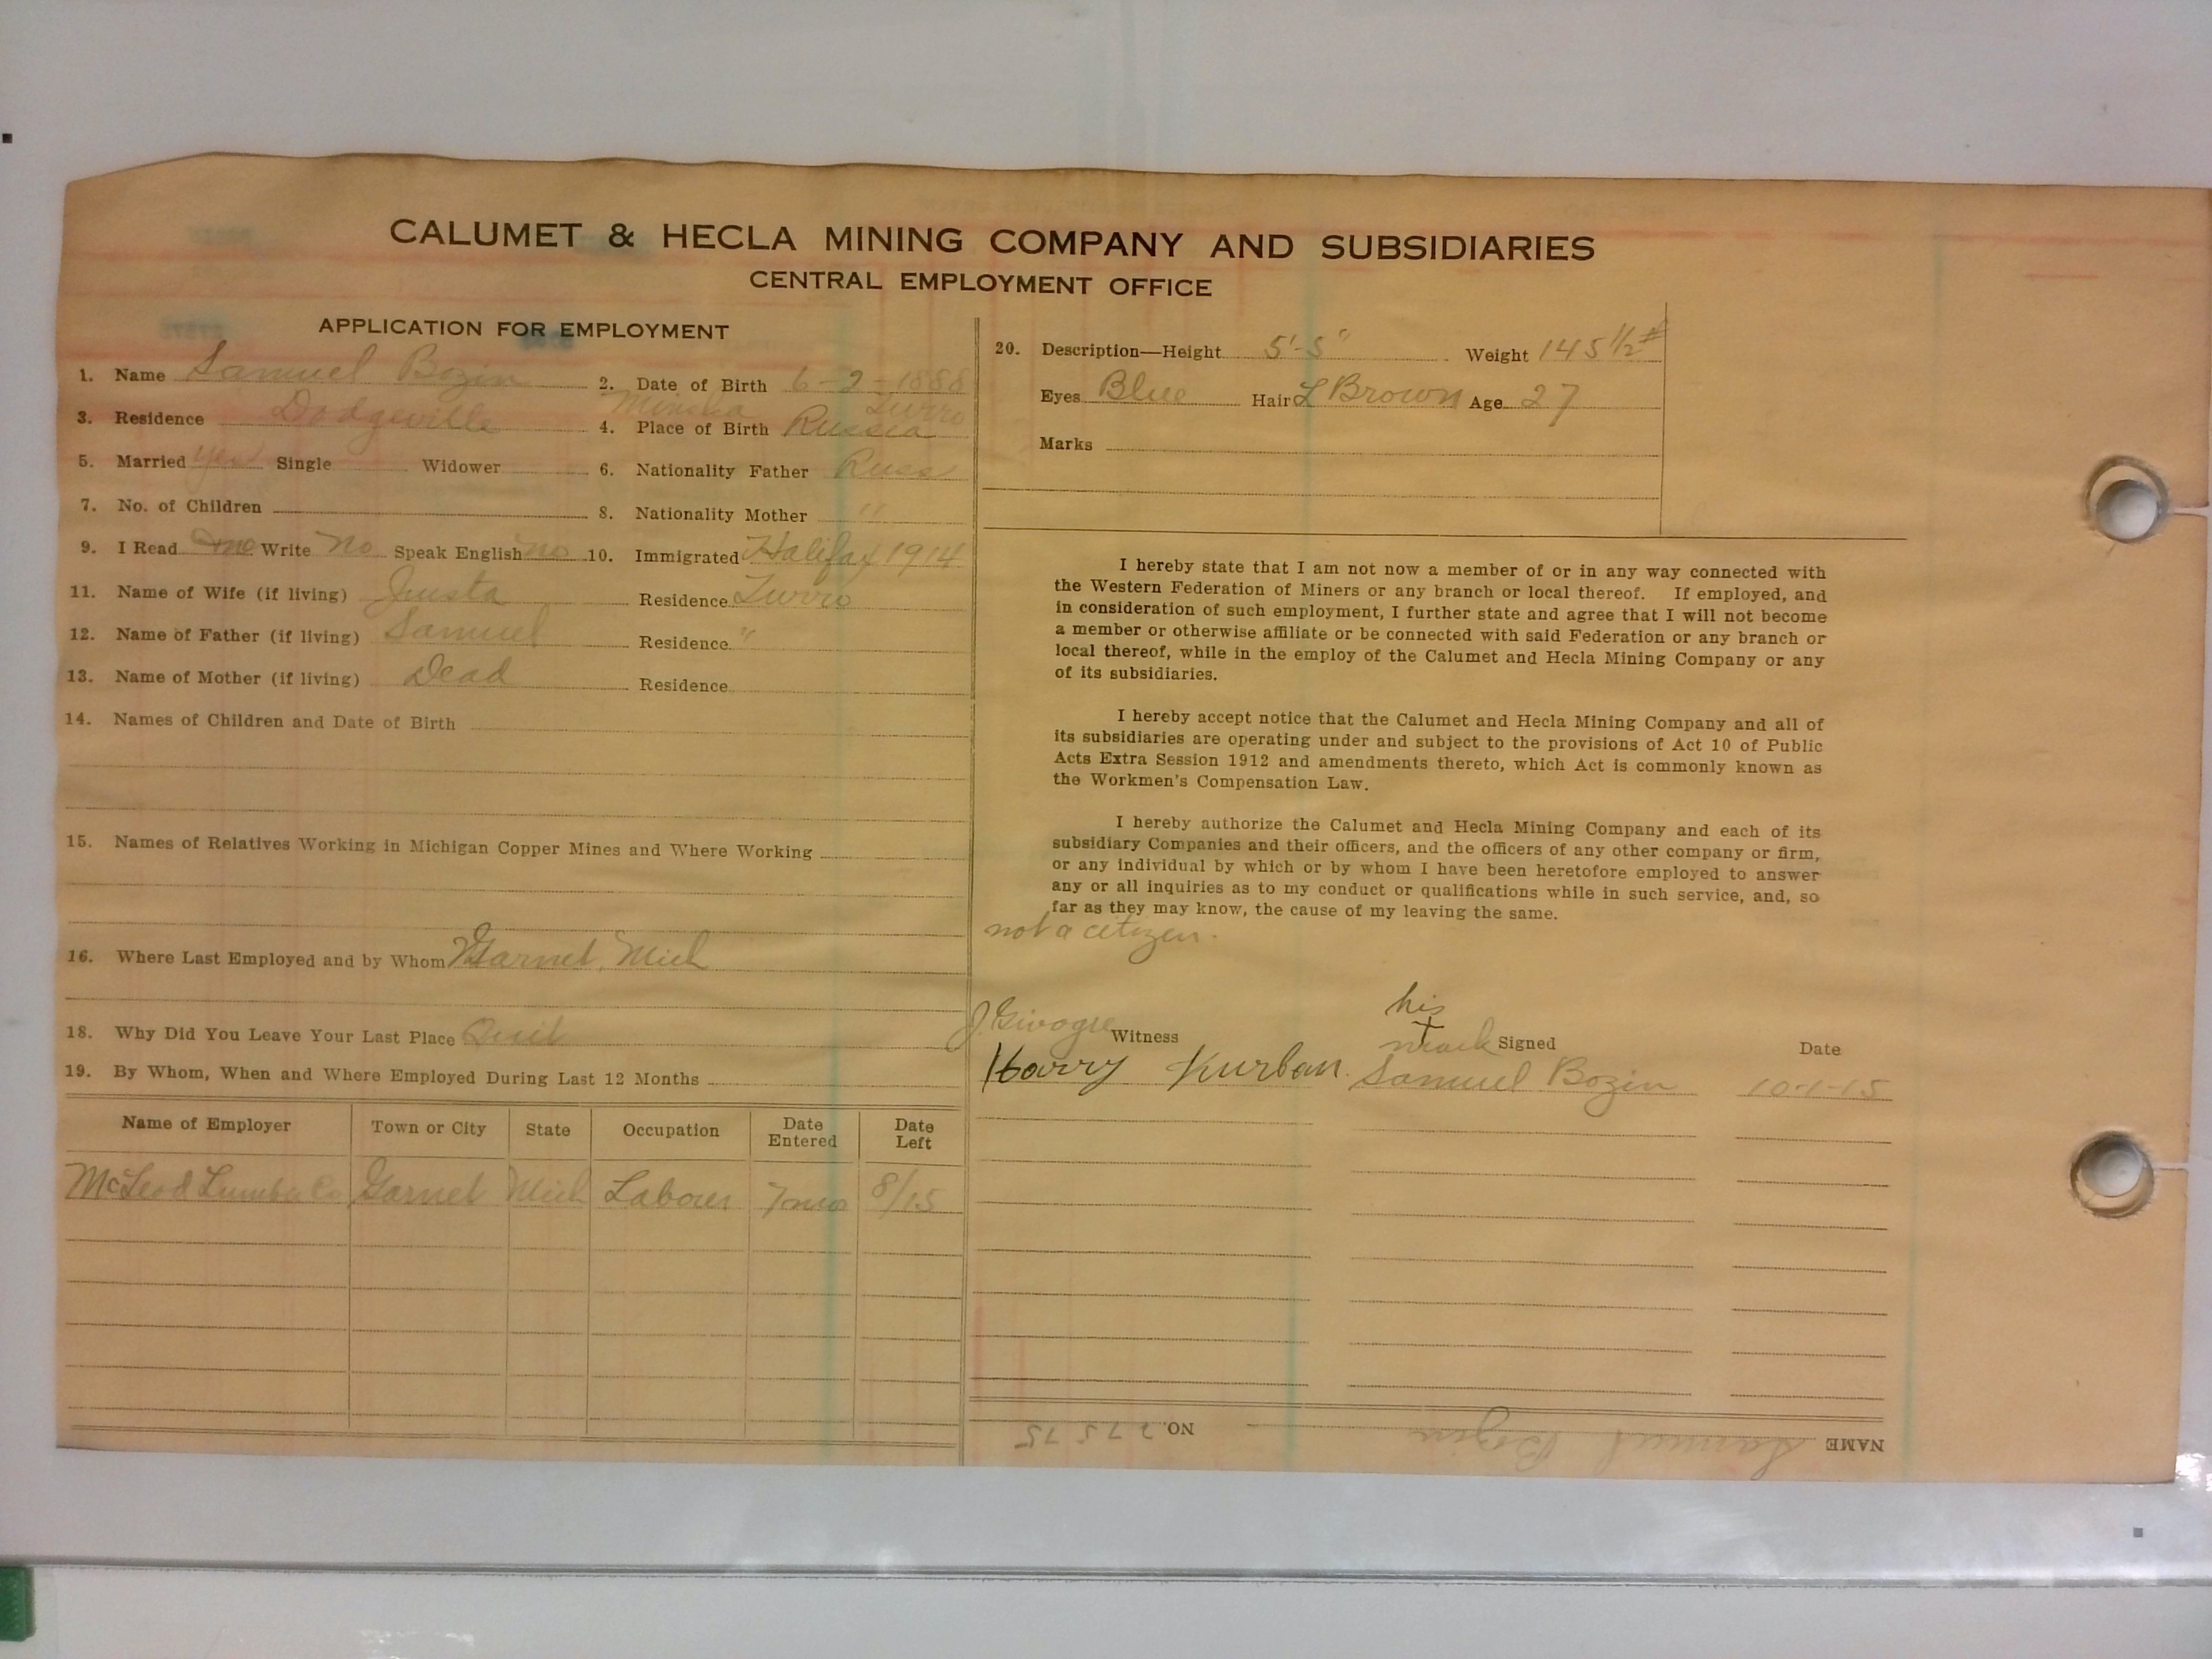 CALUMET & HECLA MINING COMPANY AND SUBSIDIARIES
CENTRAL EMPLOYMENT OFFICE
APPLICATION FOR EMPLOYMENT
1. Name Samuel Bozin 2. Date of Birth 6-2-1888
3. Residence Dodgeville 4. Place of Birth Minska Russia
5. Married yes Single Widower 6. Nationality Father Russ
7. No. of Children 8. Nationality Mother "
9. I Read Write no Speak English no 10. Immigrated Halifax 1914
11. Name of Wife (if living) Justa Residence
12. Name of Father (if living) Samuel Residence "
13. Name of Mother (if living) Dead Residence
14. Names of Children and Date of Birth
15. Names of Relatives Working in Michigan Copper Mines and Where Working
16. Where Last Employed and by Whom Garnet, Mich
18. Why Did You Leave Your Last Place Quit
19. By Whom, When and Where Employed During Last 12 Months
Name of Employer Town or City State Occupation Date Entered Date Left
McLeod Lumber Co Garnet Mich Laborer 7 mo 8/15
20. Description—Height 5'-5" Weight 145 1/2 #
Eyes Blue Hair L Brown Age 27
Marks
I hereby state that I am not now a member of or in any way connected with
the Western Federation of Miners or any branch or local thereof. If employed, and
in consideration of such employment, I further state and agree that I will not become
a member or otherwise affiliate or be connected with said Federation or any branch or
local thereof, while in the employ of the Calumet and Hecla Mining Company or any
of its subsidiaries.
I hereby accept notice that the Calumet and Hecla Mining Company and all of
its subsidiaries are operating under and subject to the provisions of Act 10 of Public
Acts Extra Session 1912 and amendments thereto, which Act is commonly known as
the Workmen's Compensation Law.
I hereby authorize the Calumet and Hecla Mining Company and each of its
subsidiary Companies and their officers, and the officers of any other company or firm,
or any individual by which or by whom I have been heretofore employed to answer
any or all inquiries as to my conduct or qualifications while in such service, and, so
far as they may know, the cause of my leaving the same.
not a citizen.
his
Witness mark Signed Date
Harry Kurban. Samuel Bozin 10-1-15
NAME Samuel Bozin NO. 27575